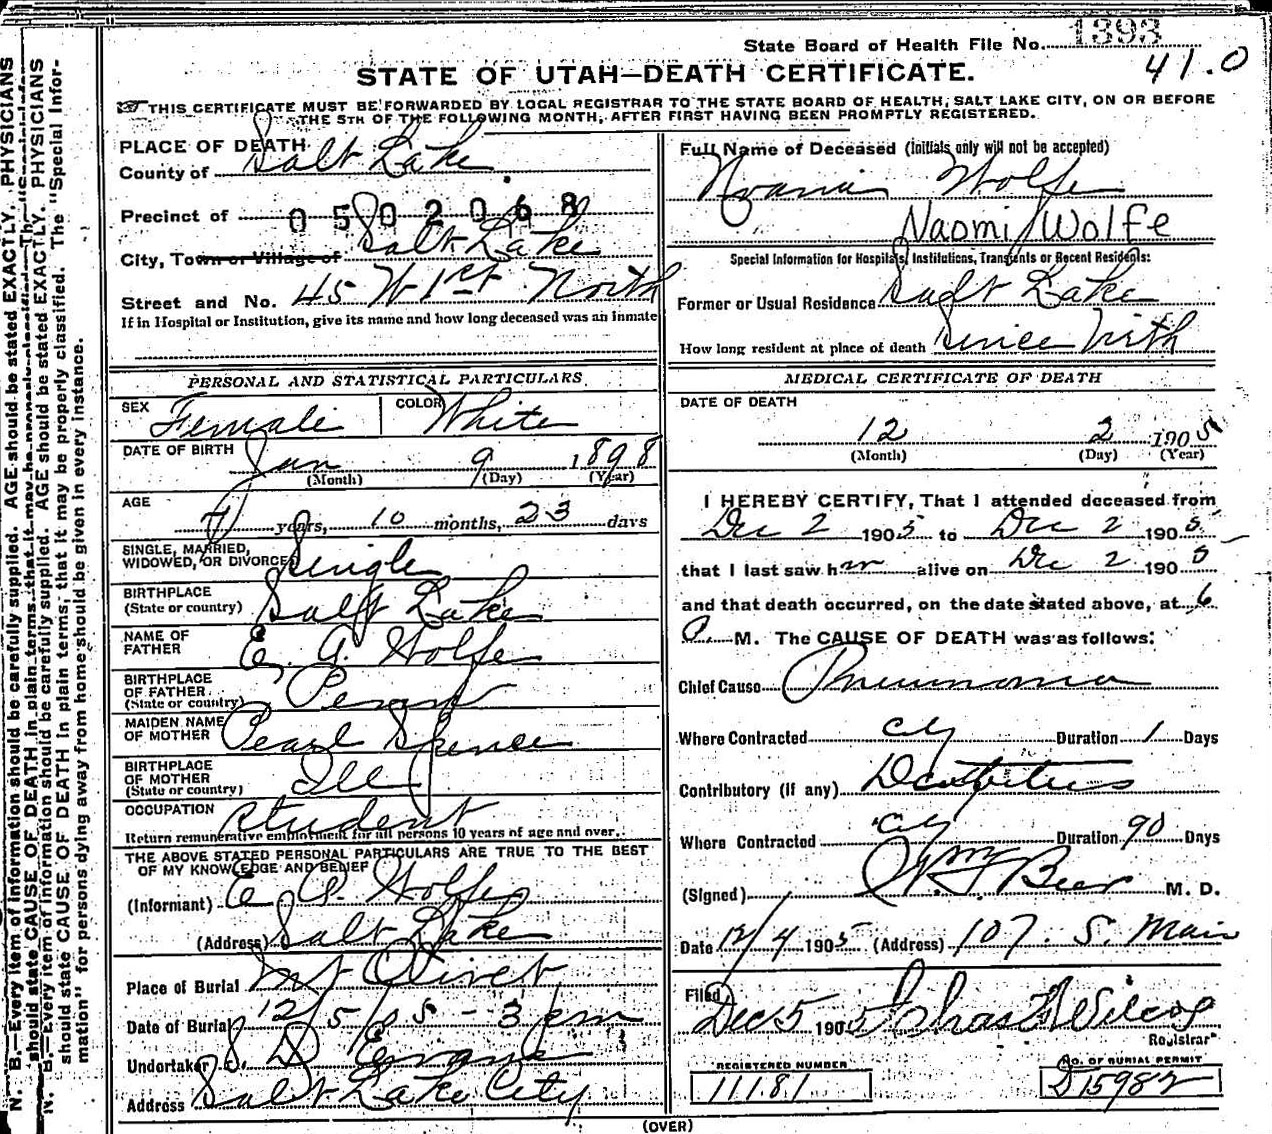 State Board of Health File No. 1393
41.0
STATE OF UTAH—DEATH CERTIFICATE.
THIS CERTIFICATE MUST BE FORWARDED BY LOCAL REGISTRAR TO THE STATE BOARD OF HEALTH, SALT LAKE CITY, ON OR BEFORE
THE 5TH OF THE FOLLOWING MONTH, AFTER FIRST HAVING BEEN PROMPTLY REGISTERED.
PLACE OF DEATH
County of Salt Lake
Precinct of 0502068
City, Town or Village of Salt Lake
Street and No. 45 W 1st North
If in Hospital or Institution, give its name and how long deceased was an inmate
PERSONAL AND STATISTICAL PARTICULARS
SEX Female COLOR White
DATE OF BIRTH Jan 9 1898
(Month) (Day) (Year)
AGE 7 years, 10 months, 23 days
SINGLE, MARRIED,
WIDOWED, OR DIVORCED Single
BIRTHPLACE
(State or country) Salt Lake
NAME OF
FATHER E. A. Wolfe
BIRTHPLACE
OF FATHER
(State or country)
MAIDEN NAME
OF MOTHER Pearl Spence
BIRTHPLACE
OF MOTHER
(State or country) Ill
OCCUPATION Student
Return remunerative employment for all persons 10 years of age and over.
THE ABOVE STATED PERSONAL PARTICULARS ARE TRUE TO THE BEST
OF MY KNOWLEDGE AND BELIEF
(Informant) E. A. Wolfe
(Address) Salt Lake
Place of Burial Mt Olivet
Date of Burial 12/5/05 - 3 pm
Undertaker S. D. Evans
Address Salt Lake City
Full Name of Deceased (Initials only will not be accepted)
Wolfe
Naomi Wolfe
Special Information for Hospitals, Institutions, Transients or Recent Residents:
Former or Usual Residence Salt Lake
How long resident at place of death Since birth
MEDICAL CERTIFICATE OF DEATH
DATE OF DEATH
12 2 1905
(Month) (Day) (Year)
I HEREBY CERTIFY, That I attended deceased from
Dec 2 1905 to Dec 2 1905
that I last saw her alive on Dec 2 1905
and that death occurred, on the date stated above, at 6
P. M. The CAUSE OF DEATH was as follows:
Chief Cause Pneumonia
Where Contracted City Duration 1 Days
Contributory (if any)
Where Contracted City Duration 90 Days
(Signed) Beer M. D.
Date 12/4 1905 (Address) 107. S. Main
Filed Dec 5 1905 Chas Wilcox
Registrar
REGISTERED NUMBER
11181
NO. OF BURIAL PERMIT
D15982
(OVER)
N. B.—Every item of information should be carefully supplied. AGE should be stated EXACTLY. PHYSICIANS
should state CAUSE OF DEATH in plain terms, that it may be properly classified. The "Special Infor-
mation" for persons dying away from home should be given in every instance.